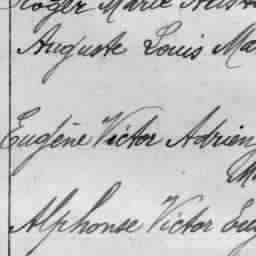 Roger Marie
Auguste Louis Ma
Eugène Victor Adrien
Alphonse Victor Eug